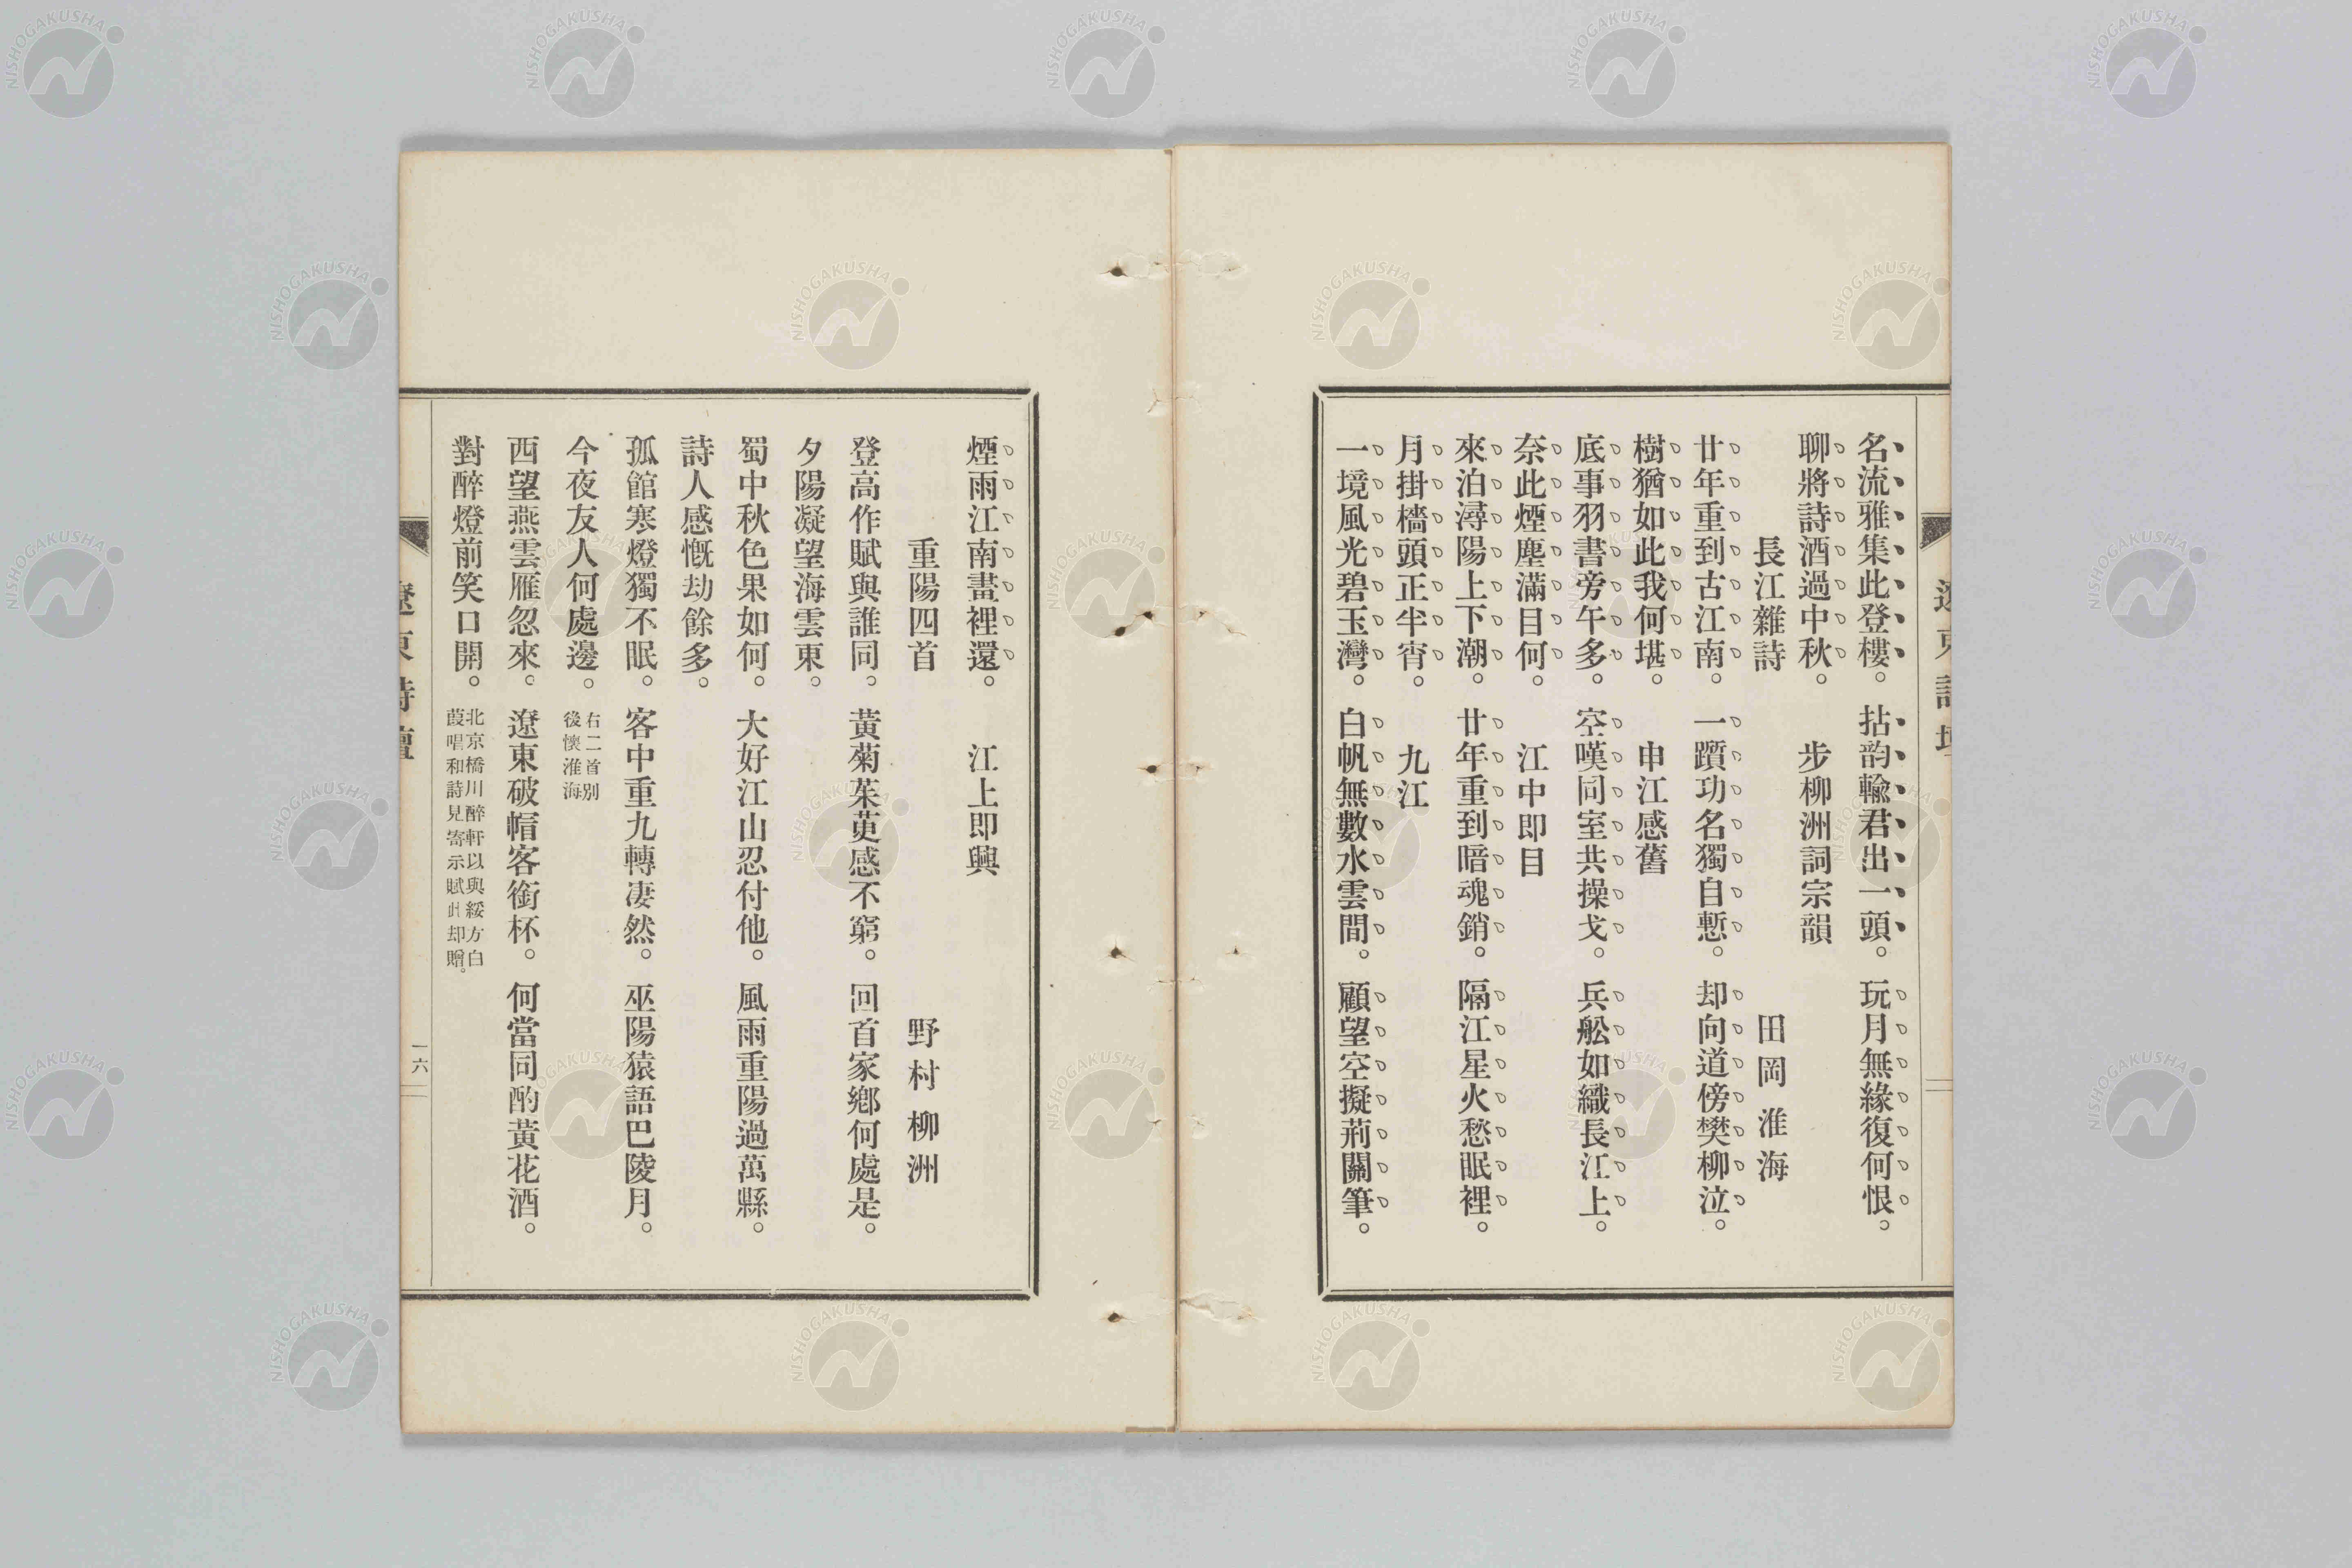 名流雅集此登樓。拈韵輸君出一頭。玩月無緣復何恨。
聊將詩酒過中秋。步柳洲詞宗韻
長江雜詩 田岡淮海
廿年重到古江南。一躓功名獨自慙。却向道傍樊柳泣。
樹猶如此我何堪。申江感舊
底事羽書旁午多。空嘆同室共操戈。兵舩如織長江上。
奈此煙塵滿目何。江中即目
來泊潯陽上下潮。廿年重到暗魂銷。隔江星火愁眠裡。
月掛檣頭正半宵。九江
一境風光碧玉灣。白帆無數水雲間。顧望空擬荊關筆。
煙雨江南畫裡還。江上即興
重陽四首 野村柳洲
登高作賦與誰同。黃菊茱萸感不窮。回首家鄉何處是。
夕陽凝望海雲東。
蜀中秋色果如何。大好江山忍付他。風雨重陽過萬縣。
詩人感慨劫餘多。
孤館寒燈獨不眠。客中重九轉凄然。巫陽猿語巴陵月。
今夜友人何處邊。右二首別後懷淮海
西望燕雲雁忽來。遼東破帽客銜杯。何當同酌黃花酒。
對醉燈前笑口開。北京橋川醉軒以與綏方白葭唱和詩見寄示賦此却贈。
遼東詩壇
一六